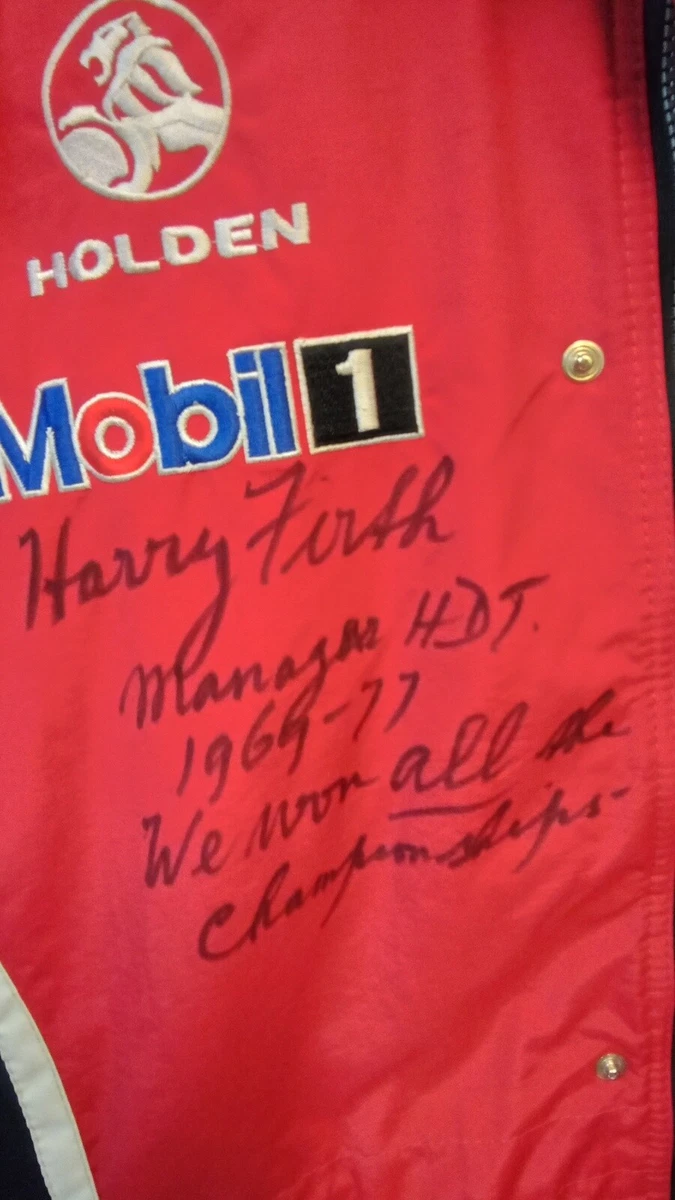 HOLDEN
Mobil 1
Harry Firth
Manager HDT.
1969-77
We won all the
Championships-